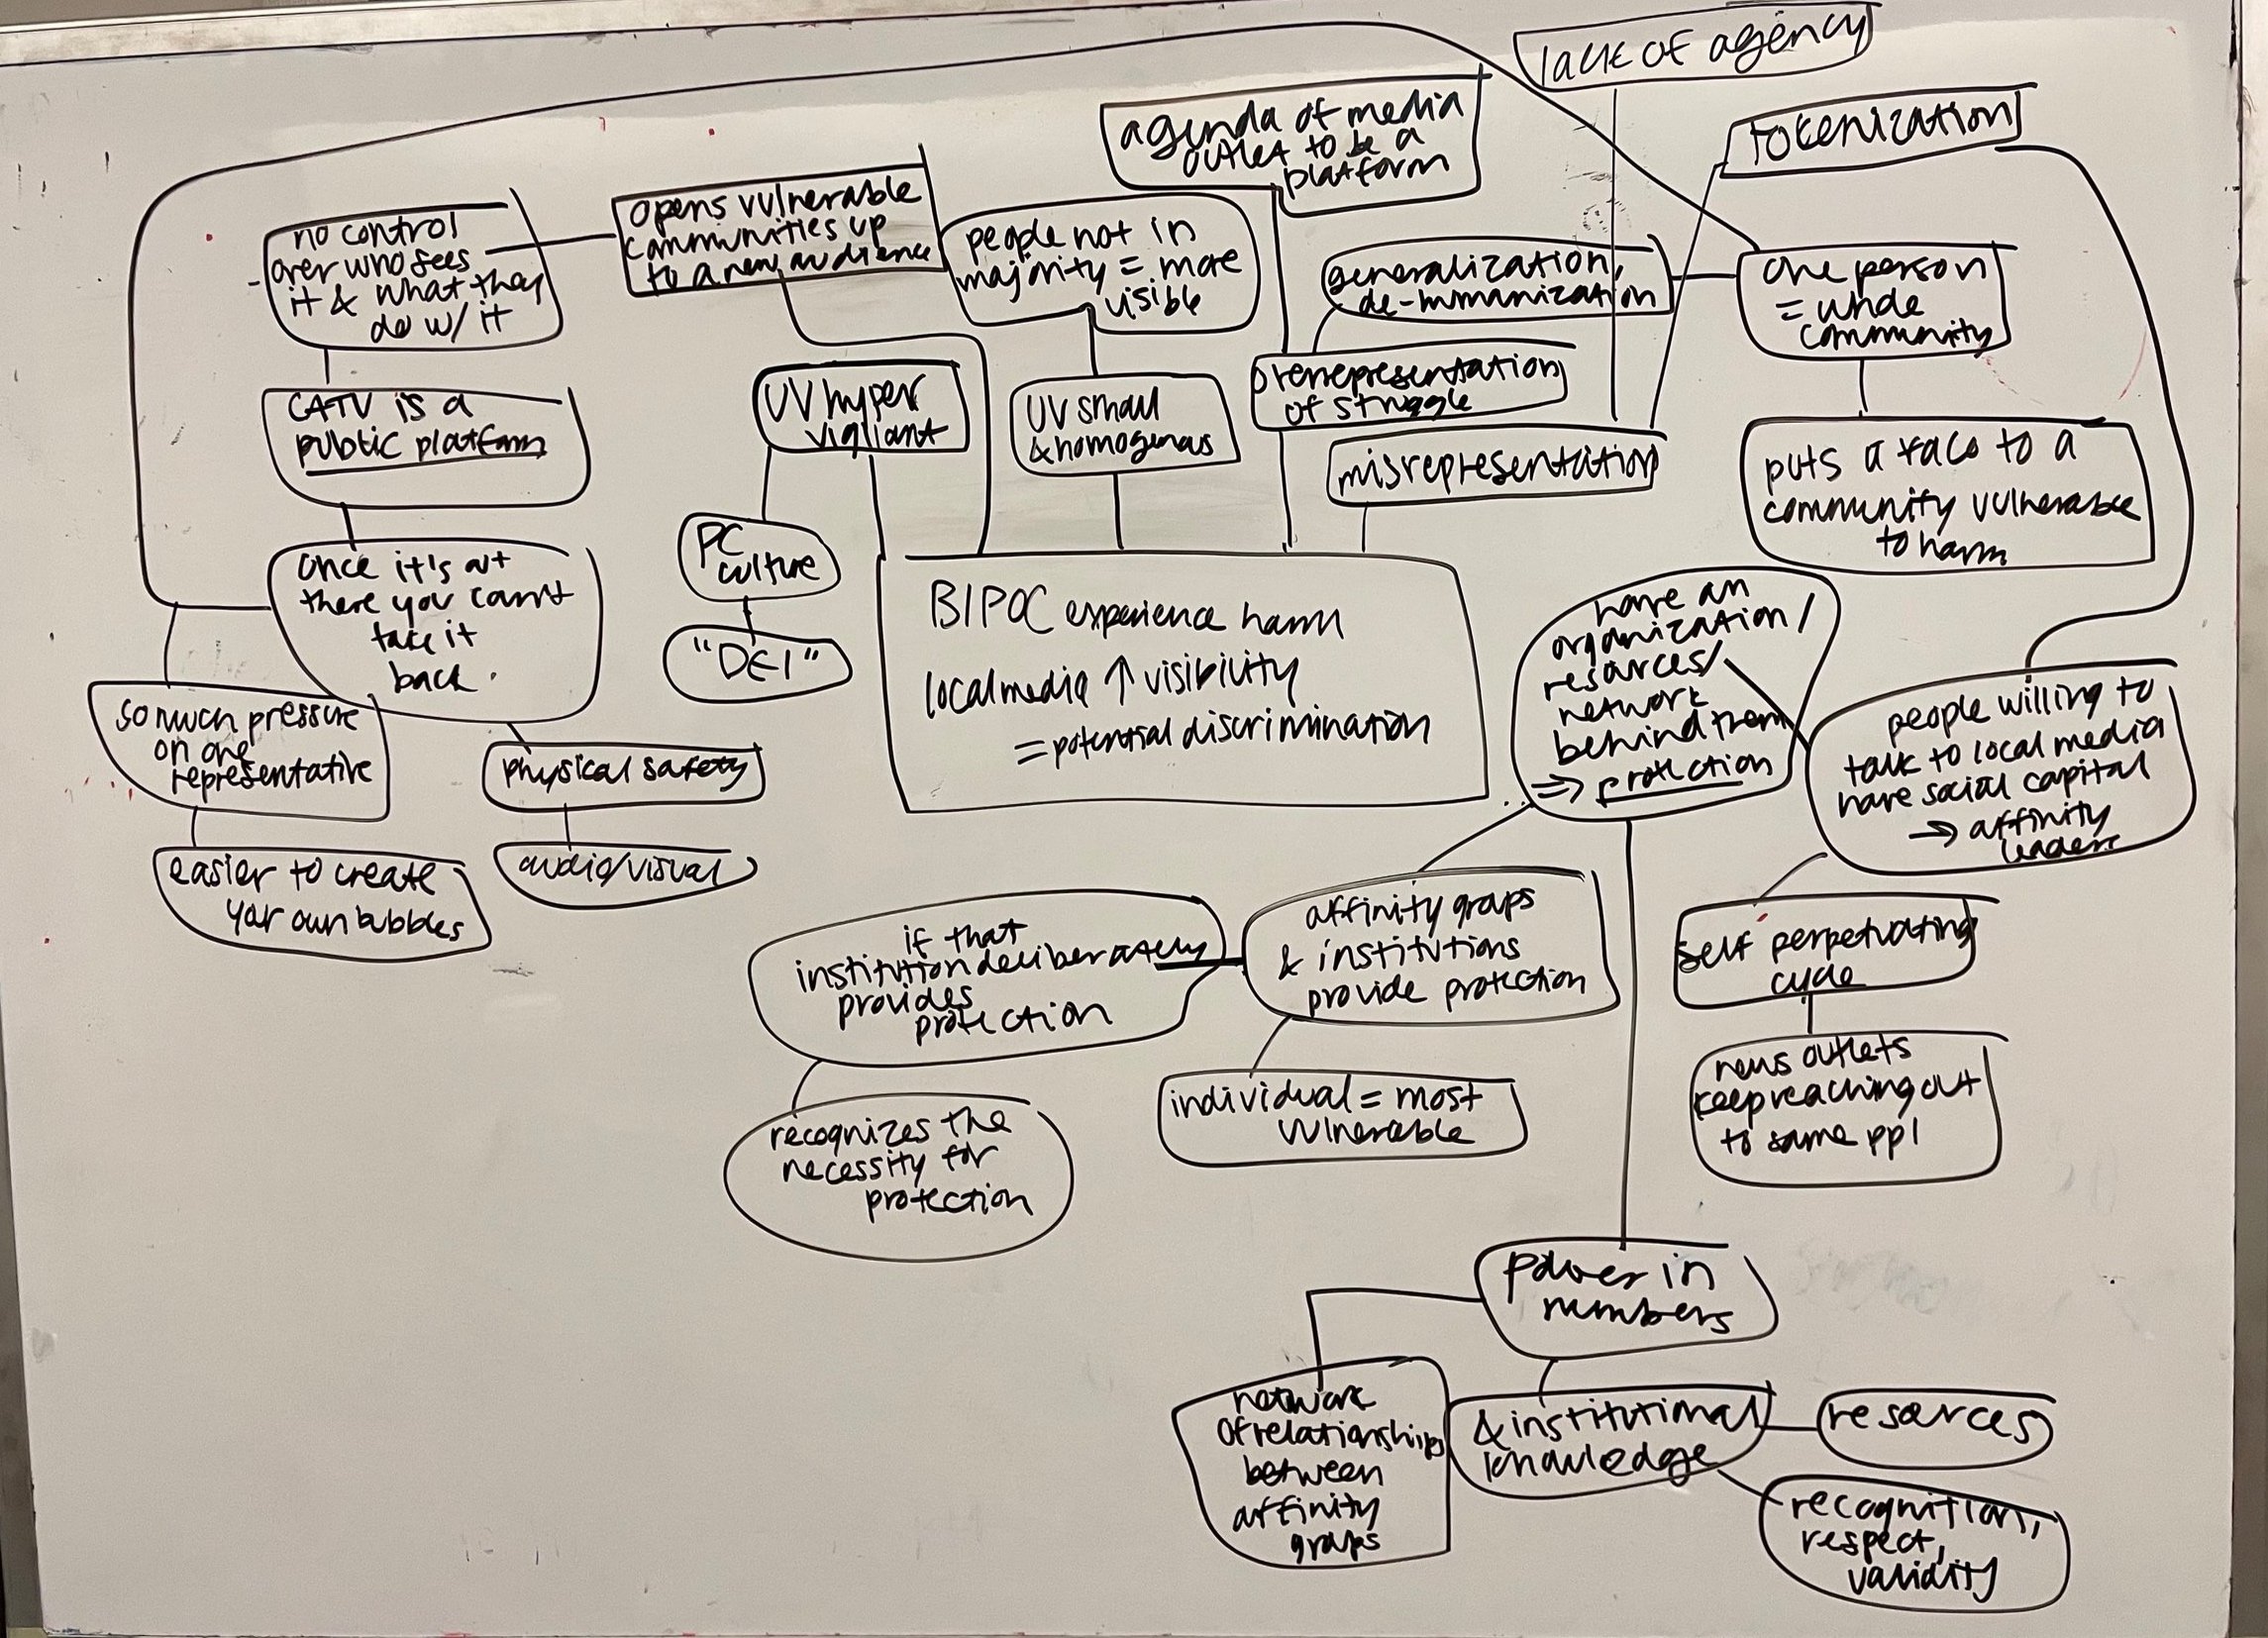 lack of agency
agenda of media
outlet to be a
platform
tokenization
no control
over who sees
it & what they
do w/ it
opens vulnerable
communities up
to a new audience
people not in
majority = more
visible
generalization,
de-humanization
one person
= whole
community
CATV is a
public platform
UV hyper
vigilant
UV small
& homogenous
overrepresentation
of struggle
misrepresentation
puts a face to a
community vulnerable
to harm
once it's out
there you can't
take it
back.
PC
culture
"DEI"
BIPOC experience harm
local media ↑ visibility
= potential discrimination
have an
organization/
resources/
network
behind them
⇒ protection
people willing to
talk to local media
have social capital
→ affinity
leaders
so much pressure
on one
representative
physical safety
easier to create
your own bubbles
audio/visual
if that
institution deliberately
provides
protection
affinity groups
& institutions
provide protection
self perpetuating
cycle
recognizes the
necessity for
protection
individual = most
vulnerable
news outlets
keep reaching out
to same ppl
power in
numbers
network
of relationships
between
affinity
groups
& institutional
knowledge
resources
recognition,
respect,
validity